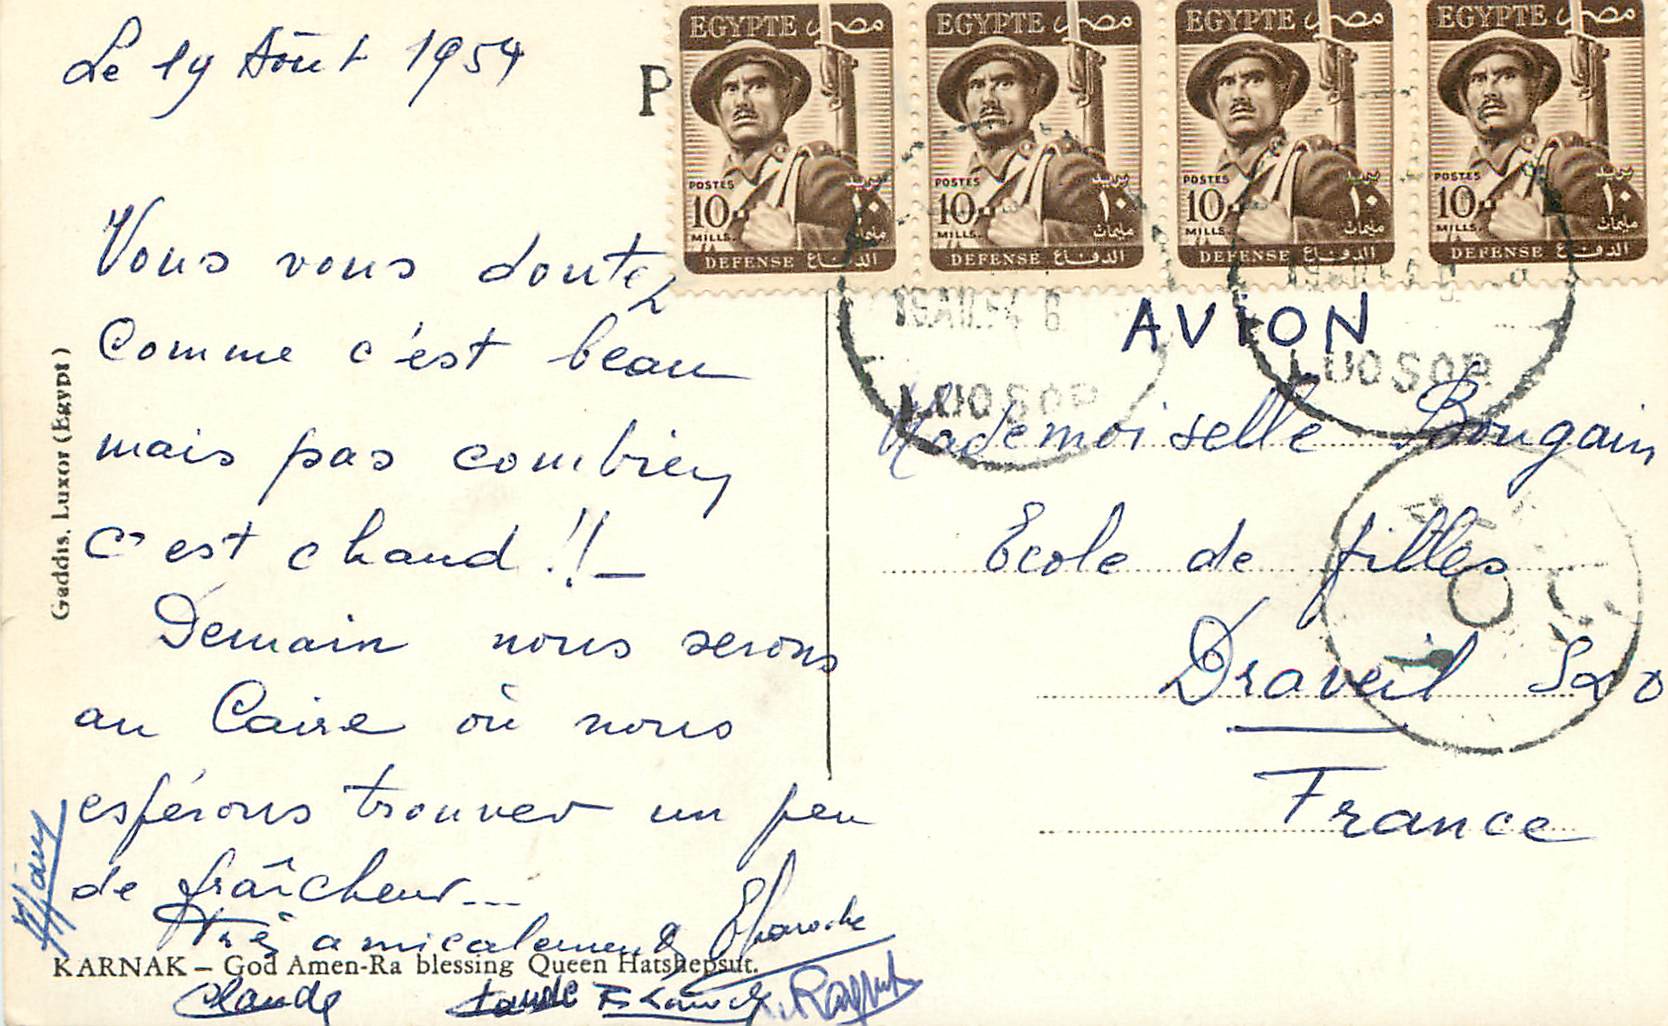 Le 19 Août 1954
P
EGYPTE مصر
POSTES بريد
10 ١٠
MILLS. مليمات
DEFENSE الدفاع
EGYPTE مصر
POSTES بريد
10 ١٠
MILLS. مليمات
DEFENSE الدفاع
EGYPTE مصر
POSTES بريد
10 ١٠
MILLS. مليمات
DEFENSE الدفاع
EGYPTE مصر
POSTES بريد
10 ١٠
MILLS. مليمات
DEFENSE الدفاع
Vous vous doutez
Comme c'est beau
mais pas combien
c'est chaud !! _
Demain nous serons
au Caire où nous
espérons trouver un peu
de fraîcheur...
Très amicalement
Claude
KARNAK – God Amen-Ra blessing Queen Hatshepsut.
Gaddis, Luxor (Egypt)
LUQSOR
LUQSOR
AVION
Mademoiselle Bougain
Ecole de filles
Draveil S&O
France